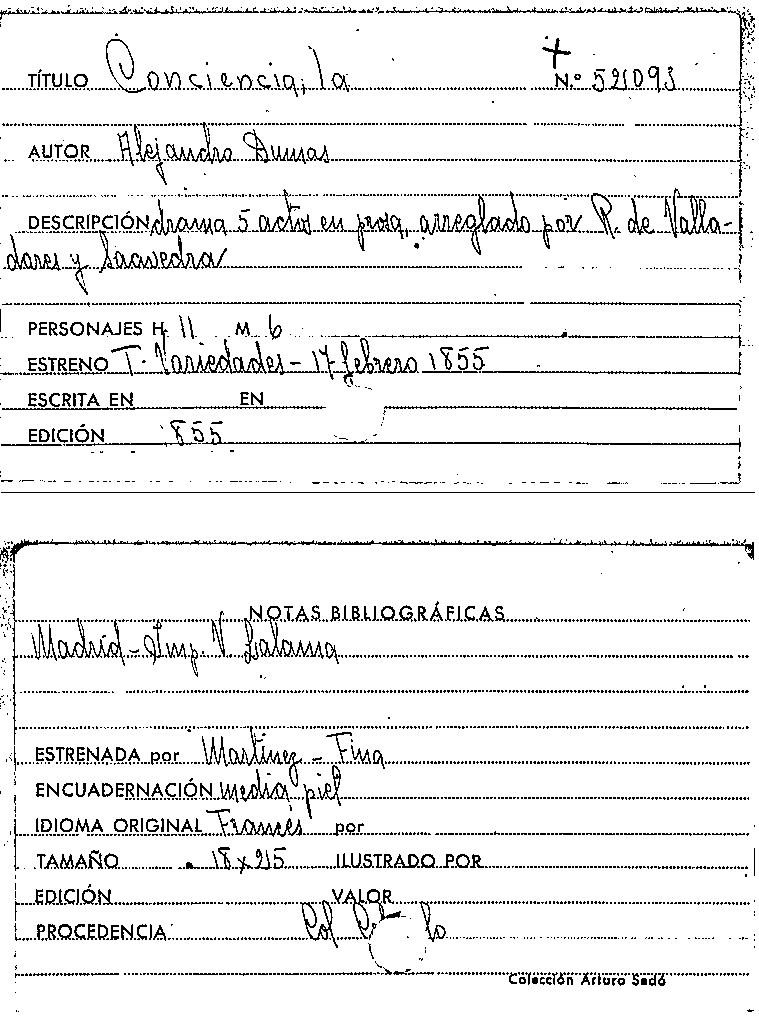 TÍTULO Conciencia, la N.º 521093
AUTOR Alejandro Dumas
DESCRIPCIÓN drama 5 actos en prosa, arreglado por R. de Valla-
dares y Saavedra
PERSONAJES H. 11 M. 6
ESTRENO T. Variedades - 17 febrero 1855
ESCRITA EN EN
EDICIÓN 1855
NOTAS BIBLIOGRÁFICAS
Madrid - Imp. V. Lalama
ESTRENADA por Martinez - Fina
ENCUADERNACIÓN media piel
IDIOMA ORIGINAL Francés por
TAMAÑO 18 x 215 ILUSTRADO POR
EDICIÓN VALOR
PROCEDENCIA Col
Colección Arturo Sedó